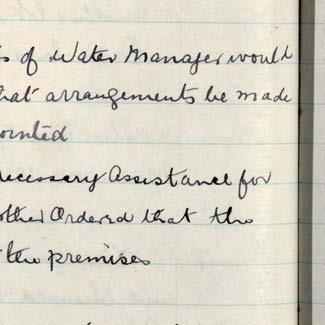 s of Water Manager would
hat arrangements be made
ointed
necessary Assistance for
other Ordered that the
the premises